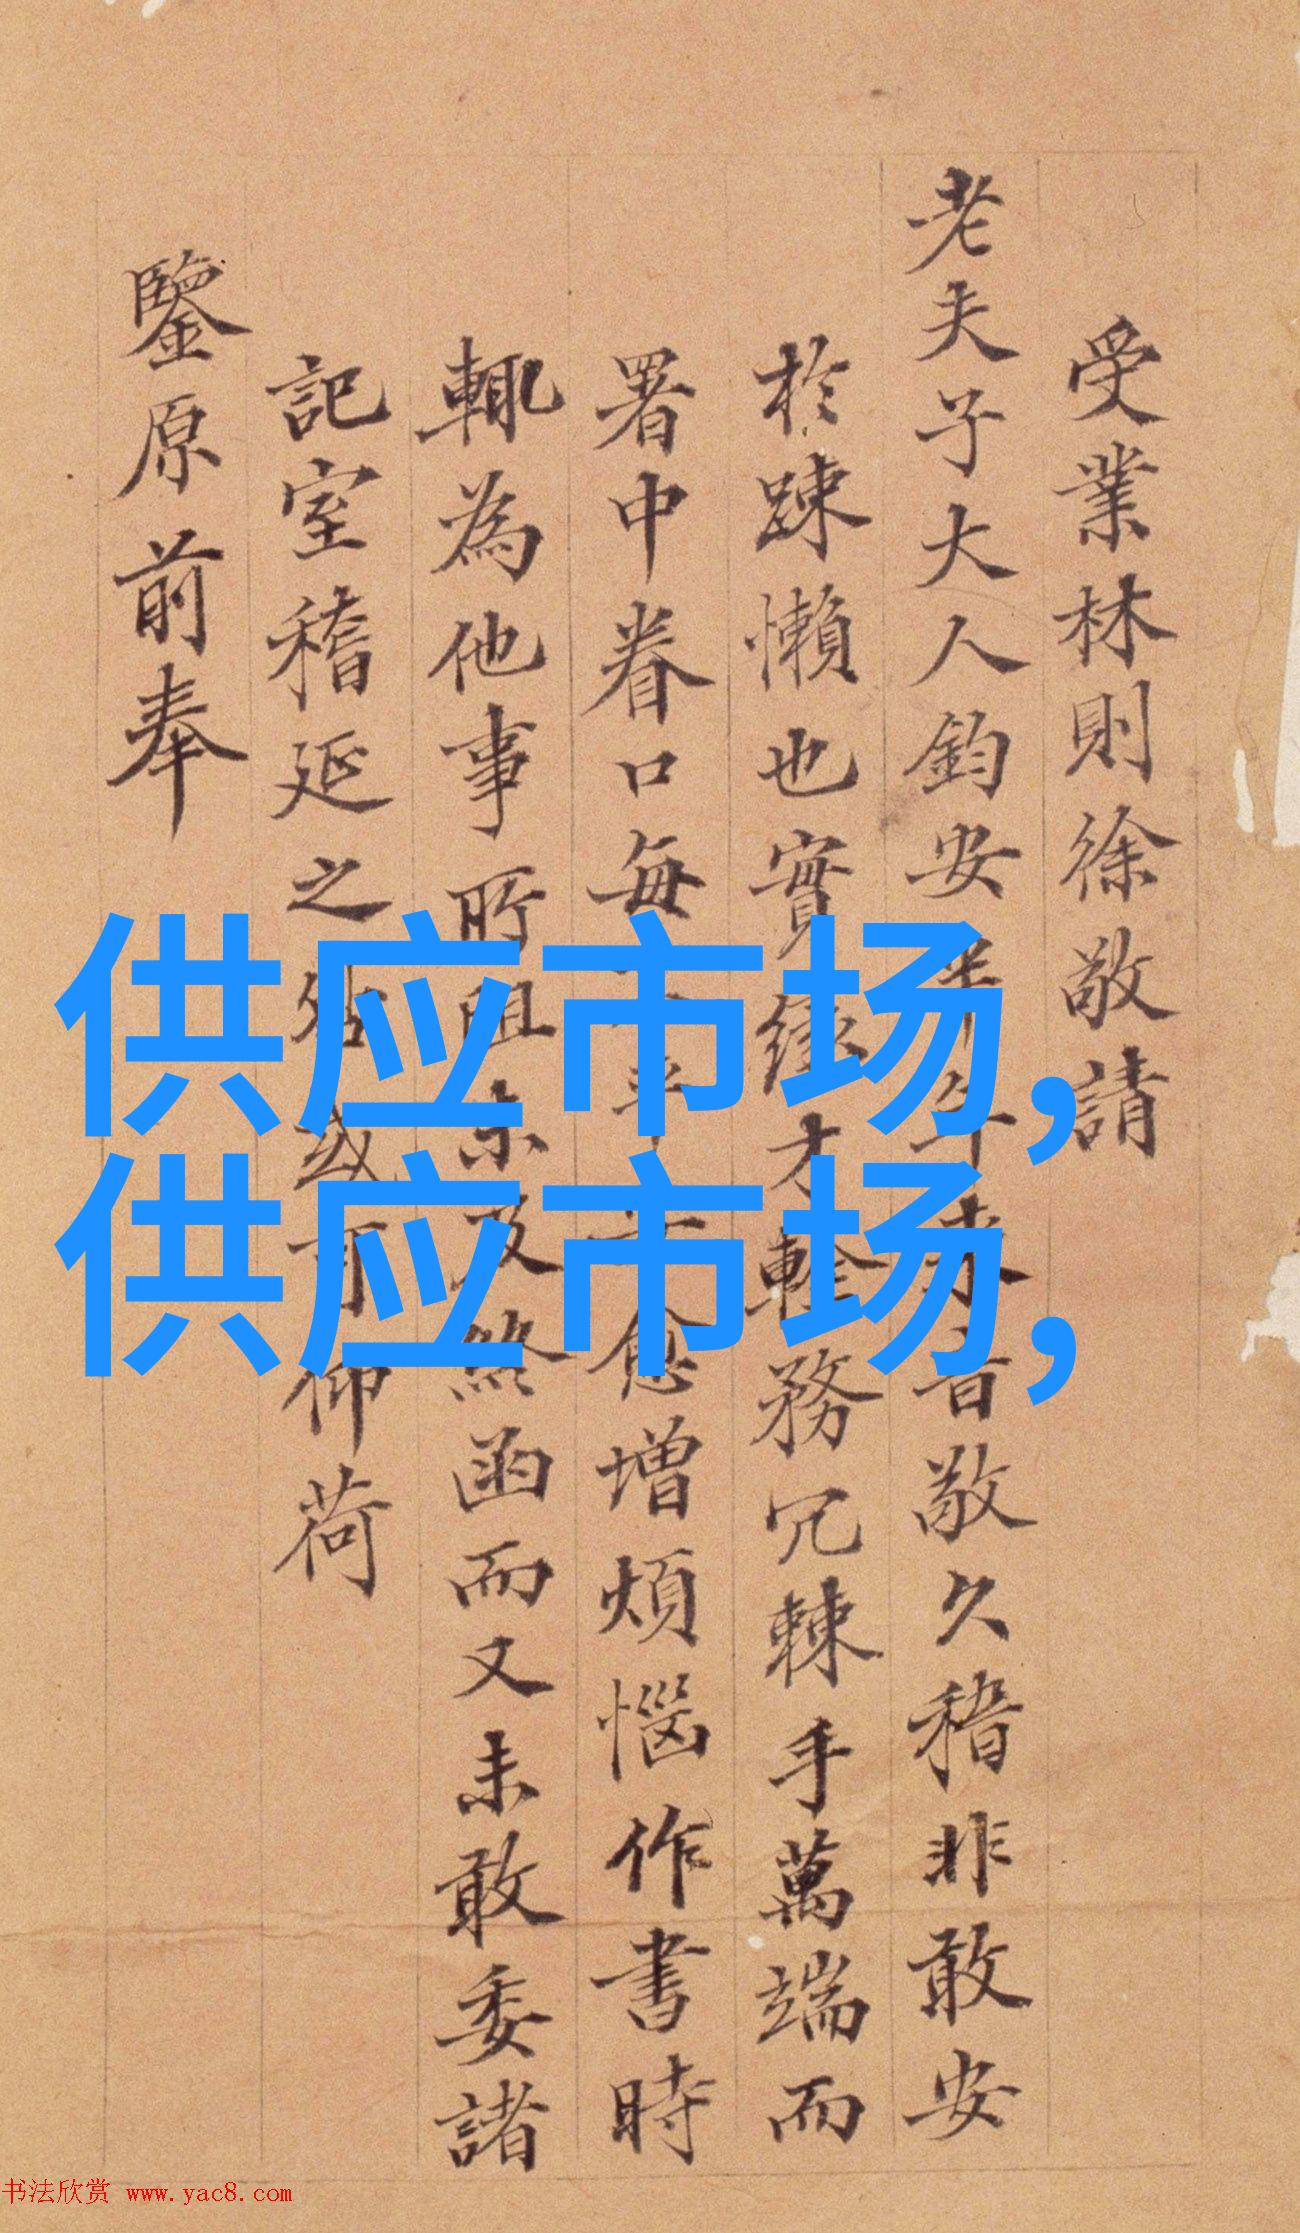 受業林則徐敬請
老夫子大人鈞安半年未音敬久稽非敢安
於踈懶也實緣才輇務冗棘手萬端而
署中眷口每愈增煩惱作書時
輒為他事所阻未及終函而又未敢委諸
記室稽延之或可仰荷
鑒原前奉
供应市场,
供应市场,
书法欣赏 www.yac8.com